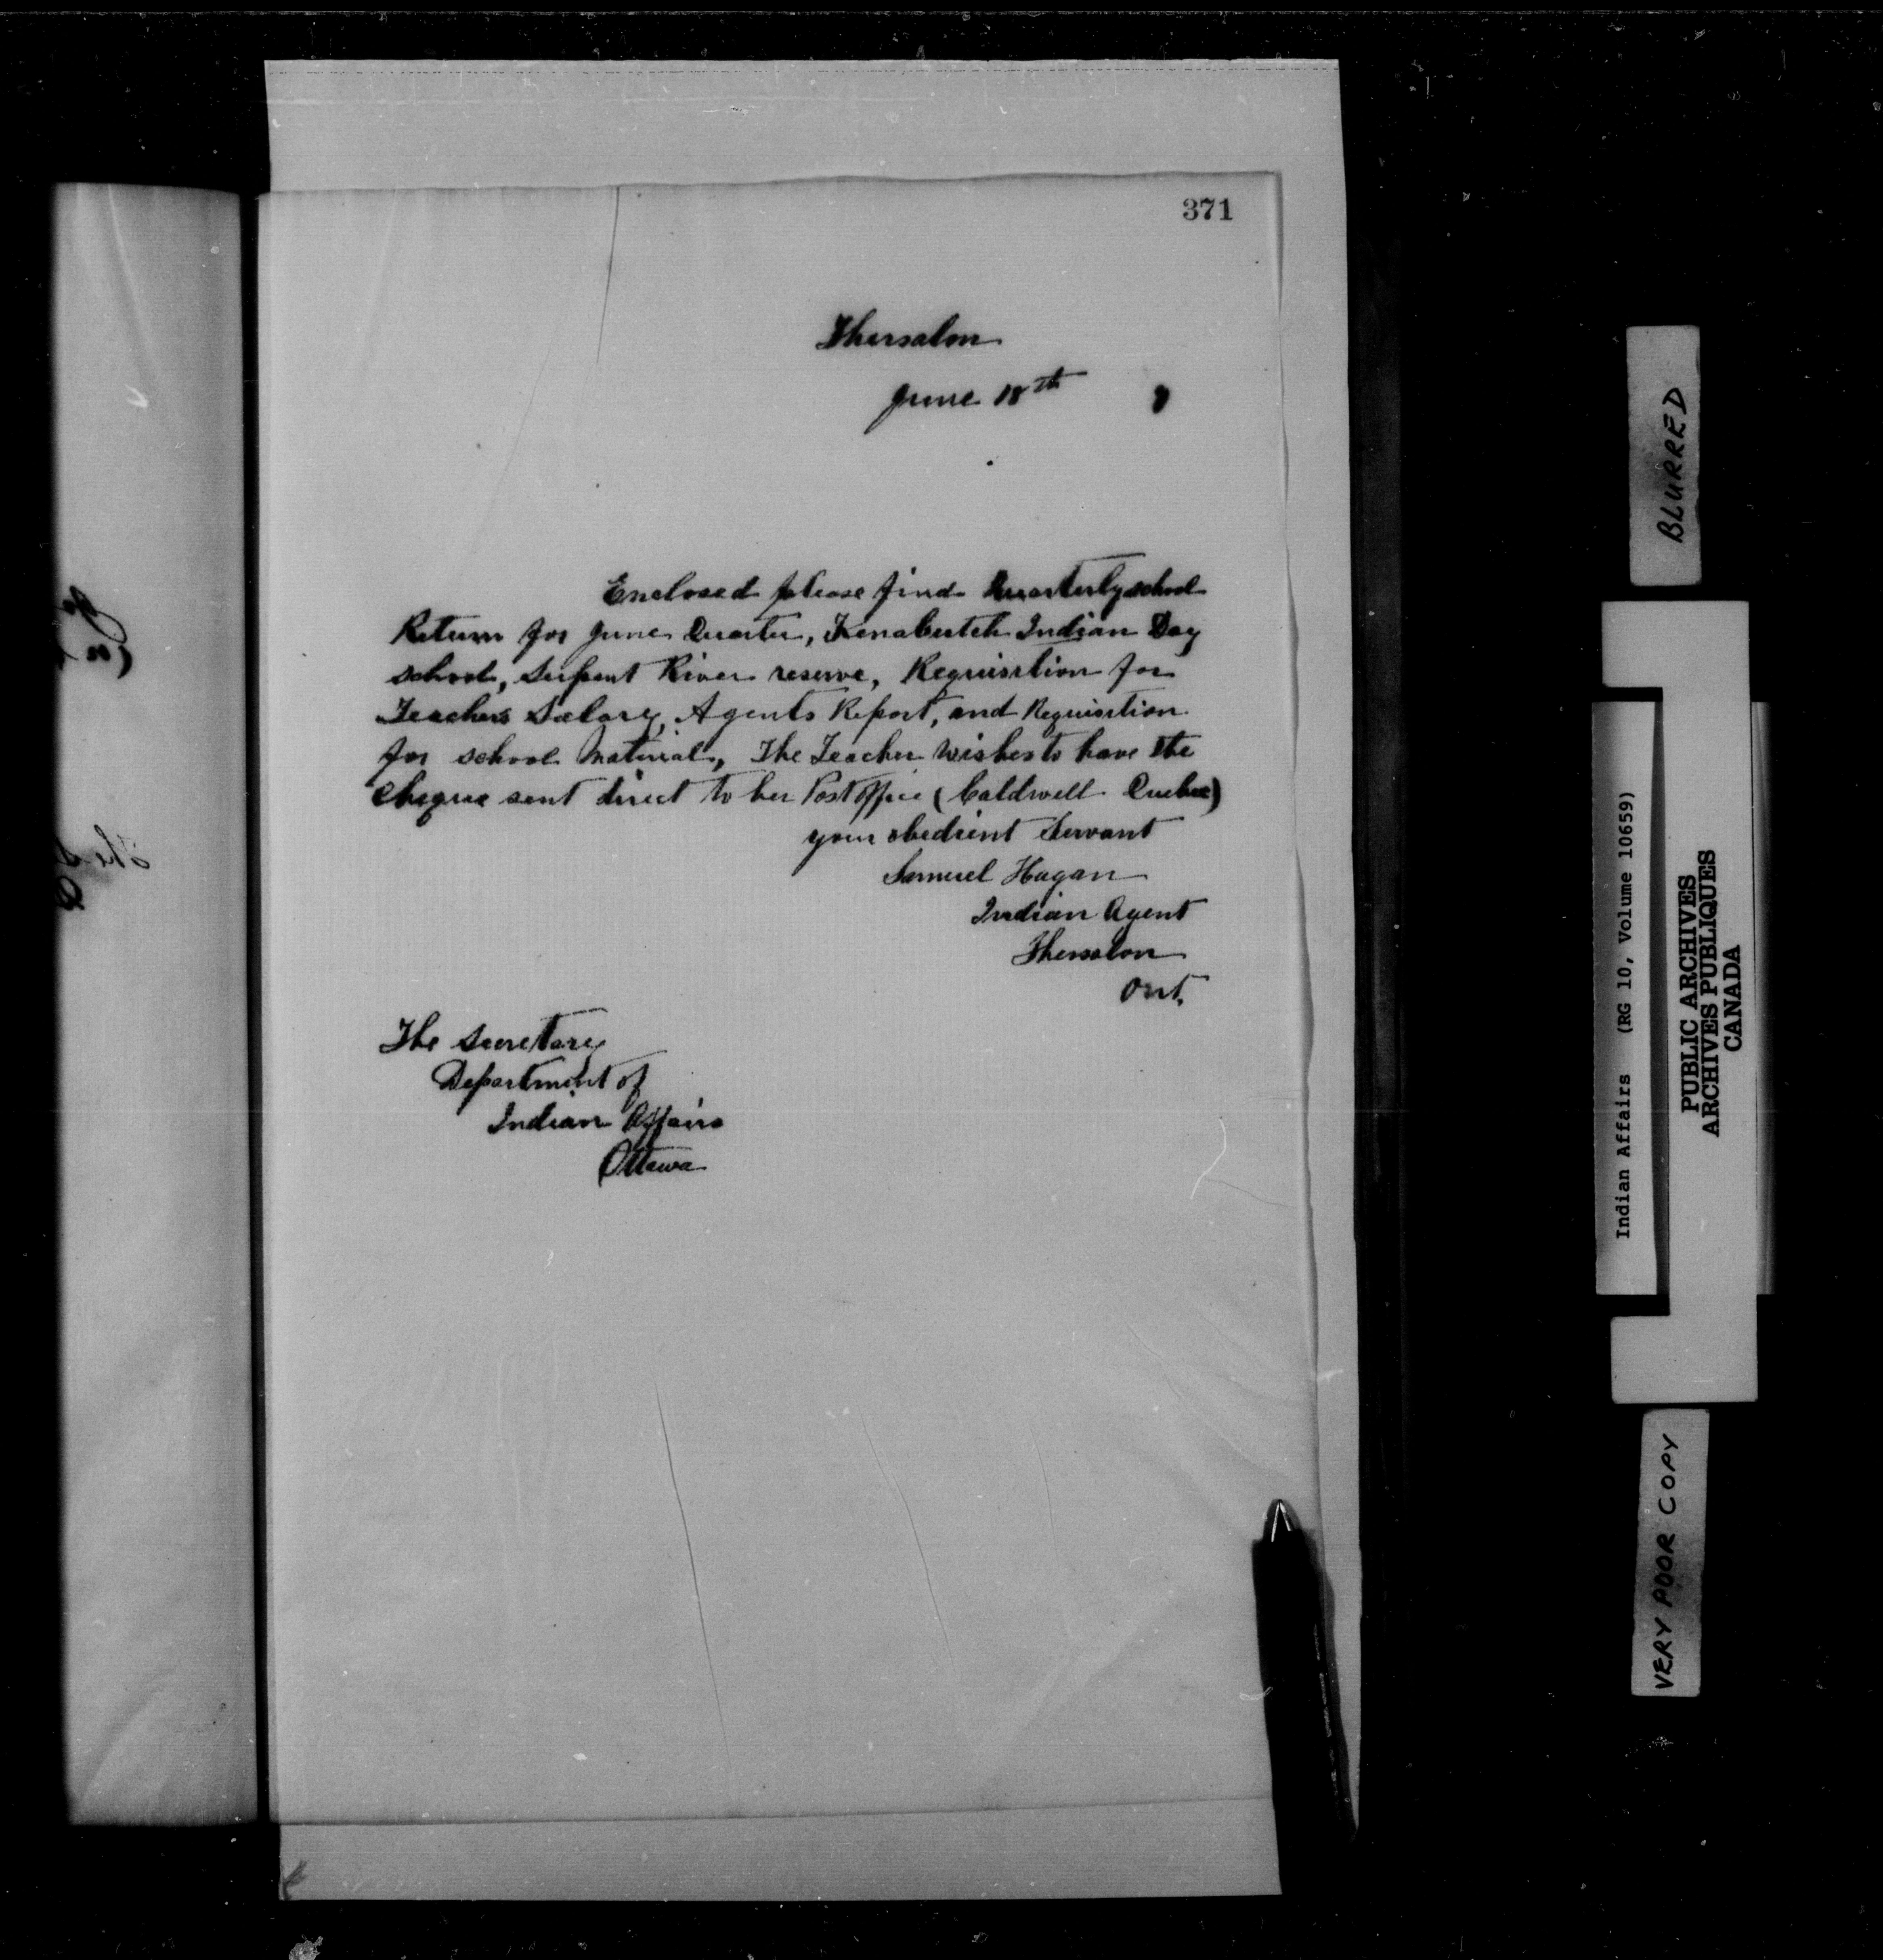 371
Thessalon
June 18th
Enclosed please find Quarterly school
Return for June Quarter, Kenabutch Indian Day
school, Serpent River reserve, Requisition for
Teachers Salary, Agents Report, and Requisition
for school Material, The Teacher wishes to have the
Cheque sent direct to her Postoffice (Caldwell Quebec)
your obedient Servant
Samuel Hagan
Indian Agent
Thessalon
Ont.
The Secretary
Department of
Indian Affairs
Ottawa
BLURRED
Indian Affairs (RG 10, Volume 10659)
PUBLIC ARCHIVES
ARCHIVES PUBLIQUES
CANADA
VERY POOR COPY